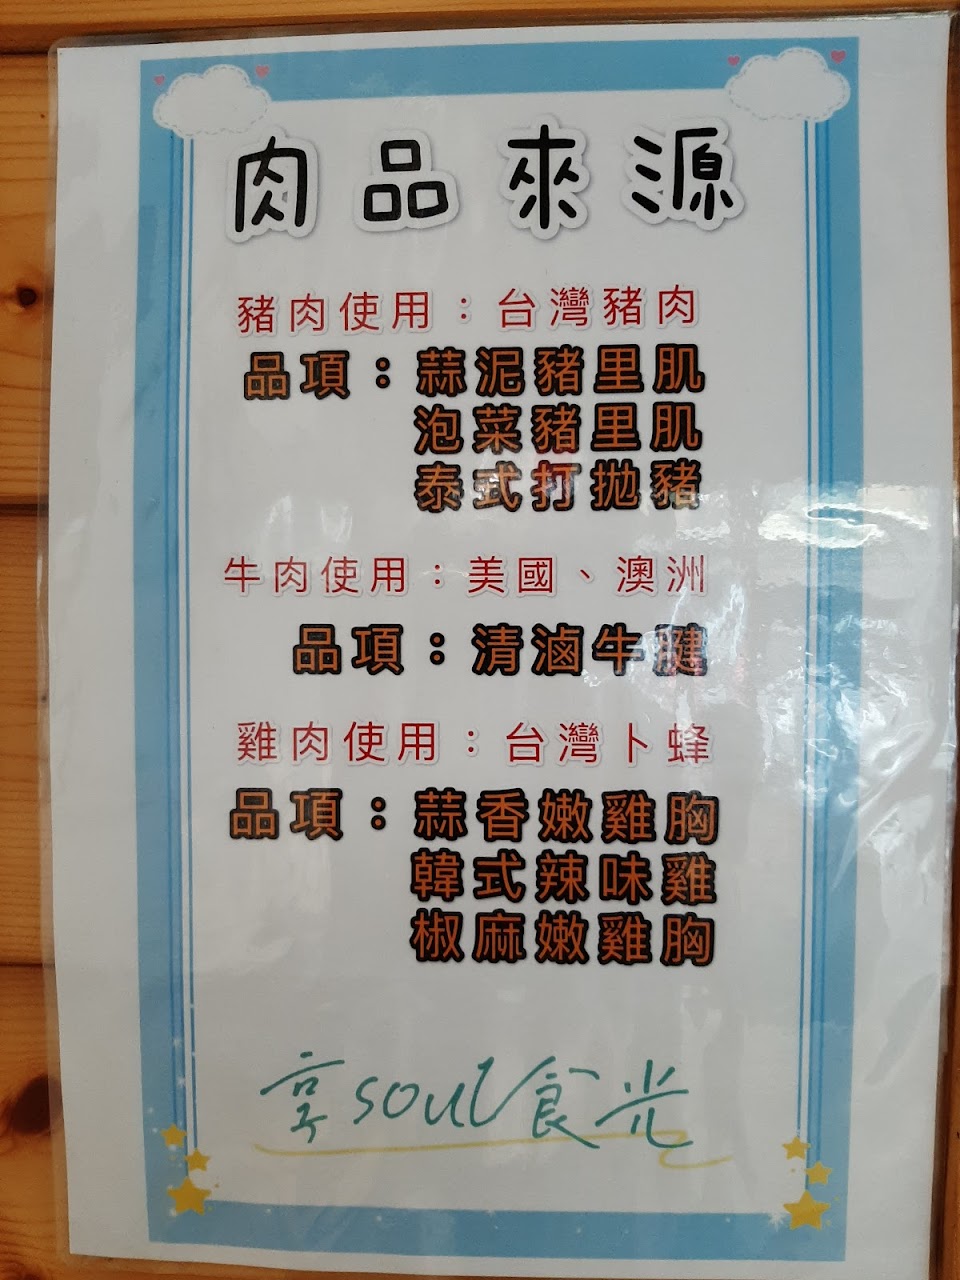 肉品來源
豬肉使用：台灣豬肉
品項：蒜泥豬里肌
泡菜豬里肌
泰式打拋豬
牛肉使用：美國、澳洲
品項：清滷牛腱
雞肉使用：台灣卜蜂
品項：蒜香嫩雞胸
韓式辣味雞
椒麻嫩雞胸
享soul食光